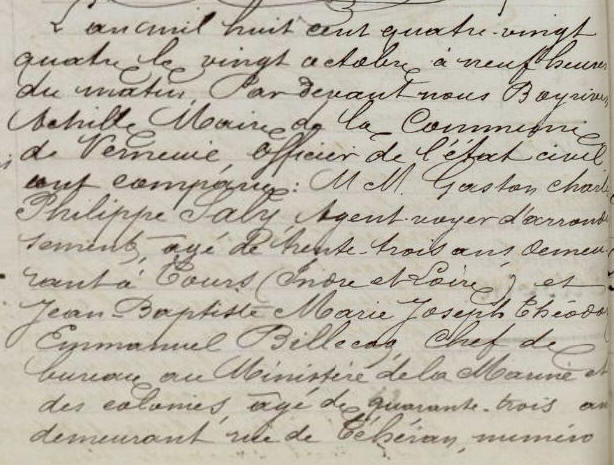 L'an mil huit cent quatre-vingt
quatre le vingt octobre à neuf heures
du matin, Par devant nous
Achille Maire de la Commune
de Verneuil, officier de l'état civil
ont comparu : M M. Gaston Charle
Philippe Saby, Agent-voyer d'arron
sement, agé de trente-trois ans demeu
rant à Tours (Indre et Loire) et
Jean-Baptiste Marie Joseph Théodo
Emmanuel Billecoq, Chef de
bureau au Ministère de la Marine et
des colonies, agé de quarante-trois an
demeurant rue de Téhéran, numéro